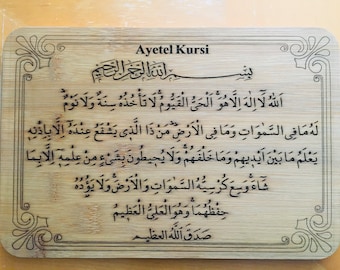 Ayetel Kursi
بِسْمِ اللَّهِ الرَّحْمَنِ الرَّحِيمِ
اَللّٰهُ لَٓا اِلٰهَ اِلَّا هُوَۚ اَلْحَيُّ الْقَيُّومُۚ لَا تَأْخُذُهُ سِنَةٌ وَلَا نَوْمٌۜ
لَهُ مَا فِي السَّمٰوَاتِ وَمَا فِي الْاَرْضِۜ مَنْ ذَا الَّذ۪ي يَشْفَعُ عِنْدَهُٓ اِلَّا بِاِذْنِه۪ۜ
يَعْلَمُ مَا بَيْنَ اَيْد۪يهِمْ وَمَا خَلْفَهُمْۚ وَلَا يُح۪يطُونَ بِشَيْءٍ مِنْ عِلْمِه۪ٓ اِلَّا بِمَا
شَٓاءَۚ وَسِعَ كُرْسِيُّهُ السَّمٰوَاتِ وَالْاَرْضَۚ وَلَا يَؤُ۫دُهُ
حِفْظُهُمَاۚ وَهُوَ الْعَلِيُّ الْعَظ۪يمُ
صَدَقَ اللَّهُ الْعَظِيم